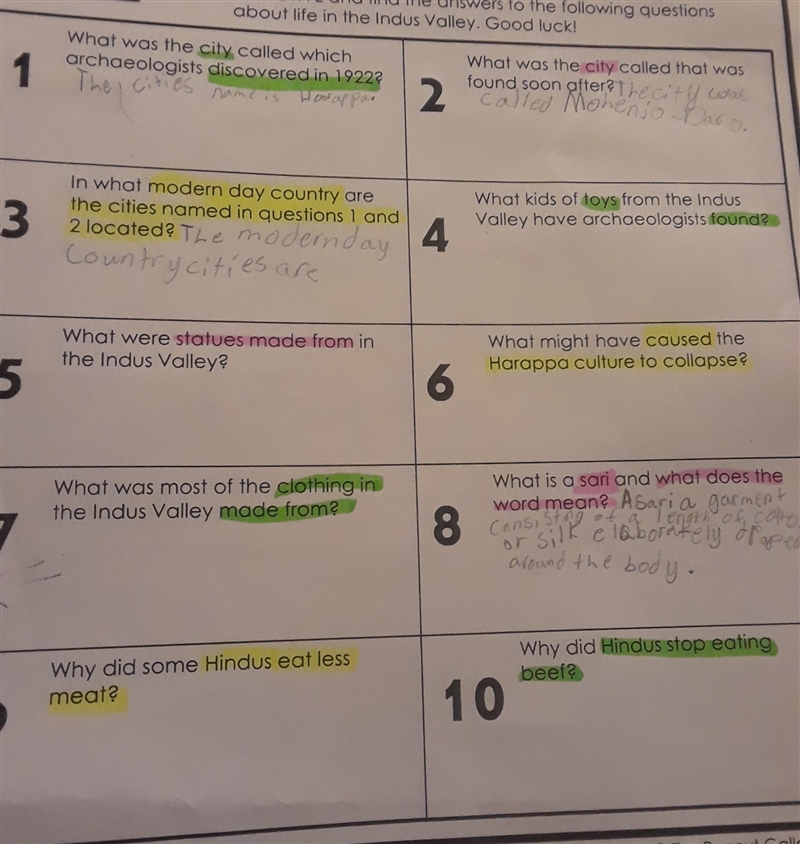 answers to the following questions
about life in the Indus Valley. Good luck!
1
What was the city called which
archaeologists discovered in 1922?
The cities
name is Harappa
2
What was the city called that was
found soon after? The city was
called Mohenjo-Daro.
3
In what modern day country are
the cities named in questions 1 and
2 located? The modern day
Country cities are
4
What kids of toys from the Indus
Valley have archaeologists found?
5
What were statues made from in
the Indus Valley?
6
What might have caused the
Harappa culture to collapse?
7
What was most of the clothing in
the Indus Valley made from?
8
What is a sari and what does the
word mean? A sari a garment
Consisting of a length of
or silk elaborately
around the body.
Why did some Hindus eat less
meat?
10
Why did Hindus stop eating
beef?